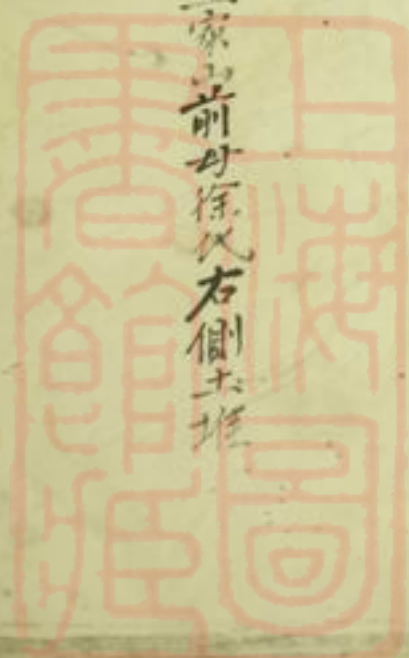 家山前母徐氏右側土堆
上海圖
書館藏